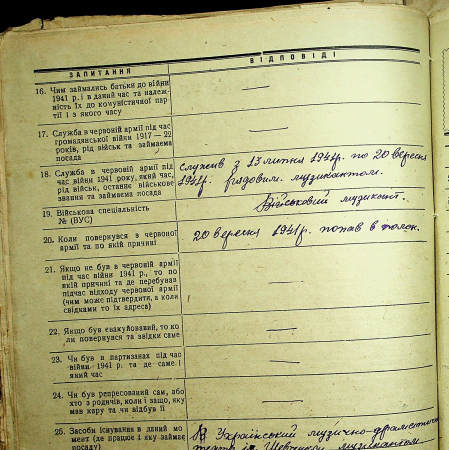 ЗАПИТАННЯ
ВІДПОВІДІ
16. Чим займались батьки до війни
1941 р. і в даний час та належ-
ність їх до комуністичної пар-
тії і з якого часу
—
17. Служба в червоній армії під час
громадянської війни 1917—22
років, рід військ та займаєма
посада
—
18. Служба в червоній армії під
час війни 1941 року, який час,
рід військ, останнє військове
звання та займаєма посада
служив з 13 липня 1941р. по 20 вересня
1941р. рядовим музикантом.
19. Військова спеціальність
№ (ВУС)
Військовий музикант.
20. Коли повернувся в червоної
армії та по якій причині
20 вересня 1941р. попав в полон.
21. Якщо не був в червоній армії
під час війни 1941 р., то по
якій причині та де перебував
підчас відходу червоної армії
(чим може підтвердити, а коли
свідками то їх адреса)
—
22. Якщо був евакуйований, то ко-
ли повернувся та звідки саме
—
23. Чи був в партизанах під час
війни 1941 р. та де саме і
який час
—
24. Чи був репресований сам, або
хто з родичів, коли і защо, яку
мав кару та чи відбув її
—
25. Засоби існування в даний мо-
мент (де працює і яку займає
посаду)
Український музично-драматичн
театр ім. Шевченка музикантом